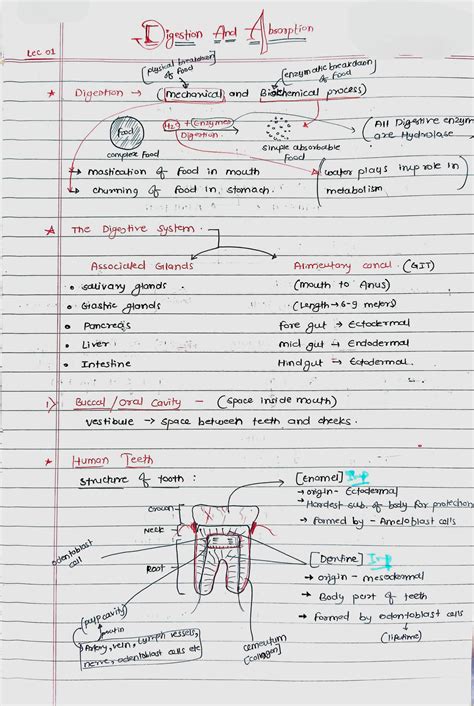 Digestion And Absorption
Lec 01
physical breakdown of food
enzymatic breakdown of food
* Digestion → (mechanical and Biochemical process)
food
H₂O + Enzymes
Digestion
complex food
simple absorbable food
All Digestive enzym are Hydrolase
→ mastication of food in mouth
→ churning of food in stomach.
water plays imp role in metabolism
* The Digestive System
Associated Glands
• Salivary glands
• Gastric glands
• Pancreas
• Liver
• Intestine
Alimentary canal (GIT)
(Mouth to Anus)
(Length → 6-9 meters)
fore gut → Ectodermal
mid gut → Endodermal
Hind gut → Ectodermal.
1) Buccal/Oral Cavity - (Space inside mouth)
vestibule → space between teeth and cheeks.
* Human Teeth
Structure of tooth :
Crown
Neck
Root
odontoblast cells
(pulp cavity)
Artery, vein, Lymph vessels, nerve, odontoblast cells etc
cementum
(collagen)
[Enamel] Imp
→ origin - Ectodermal
→ Hardest sub. of body for protection
→ formed by - Ameloblast cells
[Dentine] Imp
→ origin - mesodermal
→ Body part of teeth
→ formed by odontoblast cells
(lifetime)